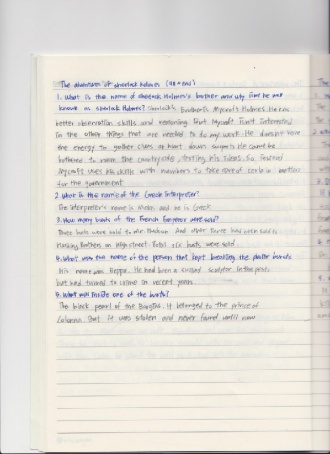 The adventures of sherlock holmes
1. What is the name of sherlock Holmes's brother and why isn't he well
known as sherlock Holmes? Sherlock's Brother is Mycroft Holmes. He has
better observation skills and reasoning. But Mycroft isn't interested
in the other things that are needed to do my work. He doesn't have
the energy to gather clues or hunt down suspects. He cannot be
bothered to roam the countryside, testing his ideas. So instead
Mycroft uses his skill with numbers to take care of certain matters
for the government
2. What is the name of the Greek Interpreter?
The interpreter's name is Melas and he is Greek
3. How many busts of the French Emperor were sold?
Three busts were sold to Mr. Hudson. And other three had been sold to
Harding Brothers on High street. Total six busts were sold.
4. What was the name of the person that kept breaking the plaster busts
His name was Beppo. He had been a skilled sculptor in the past,
but had turned to crime in recent years.
5. What was inside one of the busts?
The black pearl of the Borgias. It belonged to the prince of
Colonna. But it was stolen and never found until now